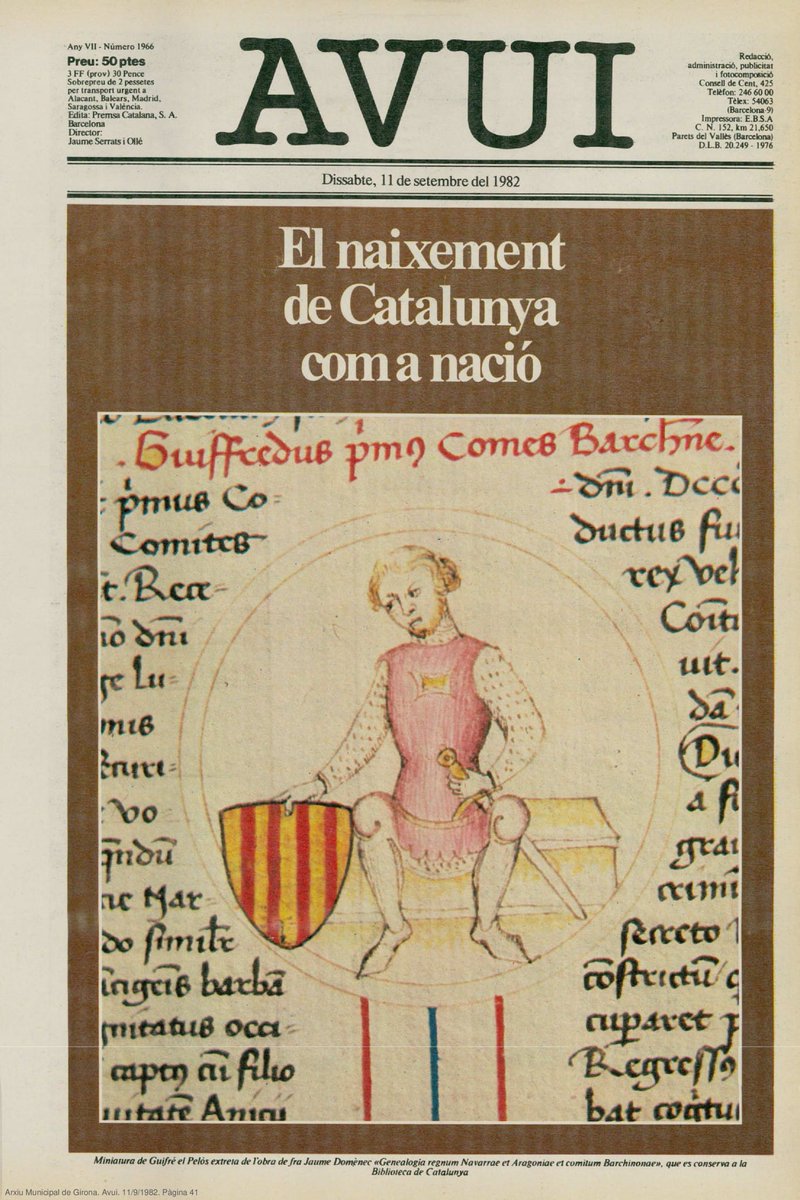 Any VII - Número 1966
Preu: 50 ptes
3 FF (prov) 30 Pence
Sobrepreu de 2 pessetes
per transport urgent a
Alacant, Balears, Madrid,
Saragossa i València.
Edita: Premsa Catalana, S. A.
Barcelona
Director:
Jaume Serrats i Ollé
AVUI
Redacció,
administració, publicitat
i fotocomposició
Consell de Cent, 425
Telèfon: 246 60 00
Tèlex: 54063
(Barcelona-9)
Impressora: E.B.S.A
C. N. 152, km 21,650
Parets del Vallès (Barcelona)
D.L.B. 20.249 - 1976
Dissabte, 11 de setembre del 1982
El naixement
de Catalunya
com a nació
Guiffredus pm9 Comes Barchne.
pmus Co
Comites
t. Rex
io dni
ge lu
mus
vo
ac Mar
do simile
barba
mitatus occi
capto cu filio
uitate Anicii
dni. Dccc
ductus fu
rex Vel
Comi
uit.
da
Du
a fi
gra
crimi
secreto
constructu
cuparet
Regresso
bat
Miniatura de Guifré el Pelós extreta de l'obra de fra Jaume Domènec «Genealogia regnum Navarrae et Aragoniae et comitum Barchinonae», que es conserva a la
Biblioteca de Catalunya
Arxiu Municipal de Girona. Avui. 11/9/1982. Pàgina 41